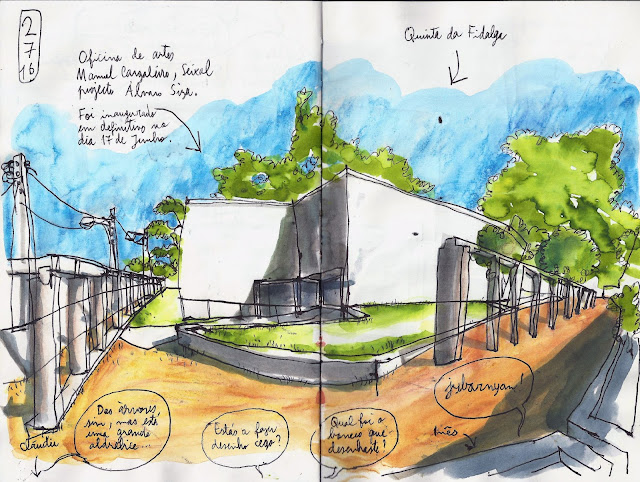 2
7
16
Oficina de artes
Manuel Cargaleiro, Seixal
projecto Álvaro Siza.
Foi inaugurado
em definitivo na
dia 17 de Junho.
Quinta da Fidalga
Das árvores,
sim, mas esta
uma grande
Estás a fazer
desenho cego?
Qual foi o
boneco que
desenhaste!
Inês